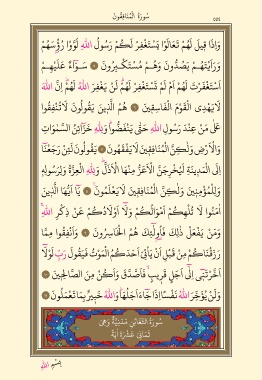 سُورَةُ الْمُنَافِقُونَ
وَاِذَا قِيلَ لَهُمْ تَعَالَوْا يَسْتَغْفِرْ لَكُمْ رَسُولُ اللّٰهِ لَوَّوْا رُؤُسَهُمْ
وَرَاَيْتَهُمْ يَصُدُّونَ وَهُمْ مُسْتَكْبِرُونَ سَوَٓاءٌ عَلَيْهِمْ
اَسْتَغْفَرْتَ لَهُمْ اَمْ لَمْ تَسْتَغْفِرْ لَهُمْ لَنْ يَغْفِرَ اللّٰهُ لَهُمْ اِنَّ اللّٰهَ
لَا يَهْدِى الْقَوْمَ الْفَاسِقِينَ هُمُ الَّذِينَ يَقُولُونَ لَا تُنْفِقُوا
عَلٰى مَنْ عِنْدَ رَسُولِ اللّٰهِ حَتّٰى يَنْفَضُّوا وَلِلّٰهِ خَزَٓائِنُ السَّمٰوَاتِ
وَالْاَرْضِ وَلٰكِنَّ الْمُنَافِقِينَ لَا يَفْقَهُونَ يَقُولُونَ لَئِنْ رَجَعْنَٓا
اِلَى الْمَدِينَةِ لَيُخْرِجَنَّ الْاَعَزُّ مِنْهَا الْاَذَلَّ وَلِلّٰهِ الْعِزَّةُ وَلِرَسُولِهِ
وَلِلْمُؤْمِنِينَ وَلٰكِنَّ الْمُنَافِقِينَ لَا يَعْلَمُونَ يَٓا اَيُّهَا الَّذِينَ
اٰمَنُوا لَا تُلْهِكُمْ اَمْوَالُكُمْ وَلَٓا اَوْلَادُكُمْ عَنْ ذِكْرِ اللّٰهِ
وَمَنْ يَفْعَلْ ذٰلِكَ فَاُولٰٓئِكَ هُمُ الْخَاسِرُونَ وَاَنْفِقُوا مِمَّا
رَزَقْنَاكُمْ مِنْ قَبْلِ اَنْ يَاْتِىَ اَحَدَكُمُ الْمَوْتُ فَيَقُولَ رَبِّ لَوْلَٓا
اَخَّرْتَنِٓى اِلٰٓى اَجَلٍ قَرِيبٍ فَاَصَّدَّقَ وَاَكُنْ مِنَ الصَّالِحِينَ
وَلَنْ يُؤَخِّرَ اللّٰهُ نَفْسًا اِذَا جَٓاءَ اَجَلُهَا وَاللّٰهُ خَبِيرٌ بِمَا تَعْمَلُونَ
سُورَةُ التَّغَابُنِ مَدَنِيَّةٌ وَهِىَ
ثَمَانِىَ عَشْرَةَ اٰيَةً
بِسْمِ اللّٰهِ